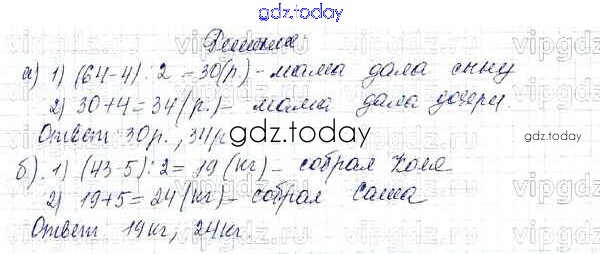 gdz.today
Решение
а) 1) (64-4):2=30(р.)- мама дала сыну
2) 30+4=34(р.)- мама дала дочери.
Ответ: 30р., 34р
gdz.today
б). 1) (43-5):2= 19 (кг)- собрал Коля
2) 19+5=24(кг)-собрал Саша
Ответ: 19кг, 24кг.
gdz.today